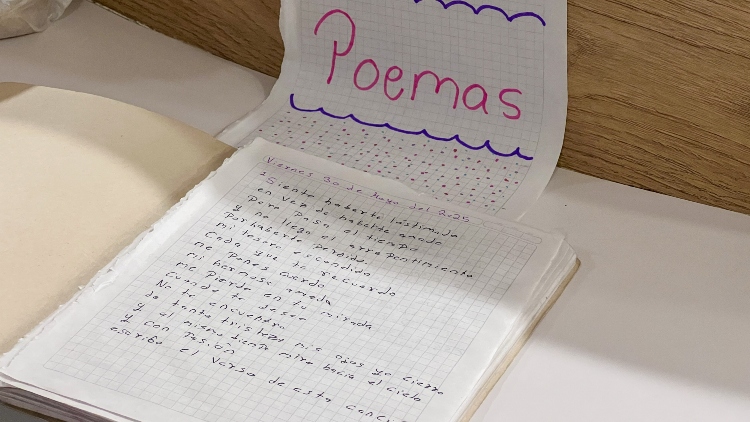 Poemas
Viernes 30 de Mayo del 2025
Siento haberte lastimado
en vez de haberte amado
Pero pasa el tiempo
y no llega el arrepentimiento
Por haberte perdido.
mi tesoro escondido
Cada que te recuerdo
me pones cuerdo
mi hermosa amada
me pierdo en tu mirada
Cuando te deseo
No te encuentro
de tanta tristeza mis ojos yo cierro
y al mismo tiempo miro hacia el cielo
y con Pasión
escribo el verso de esta